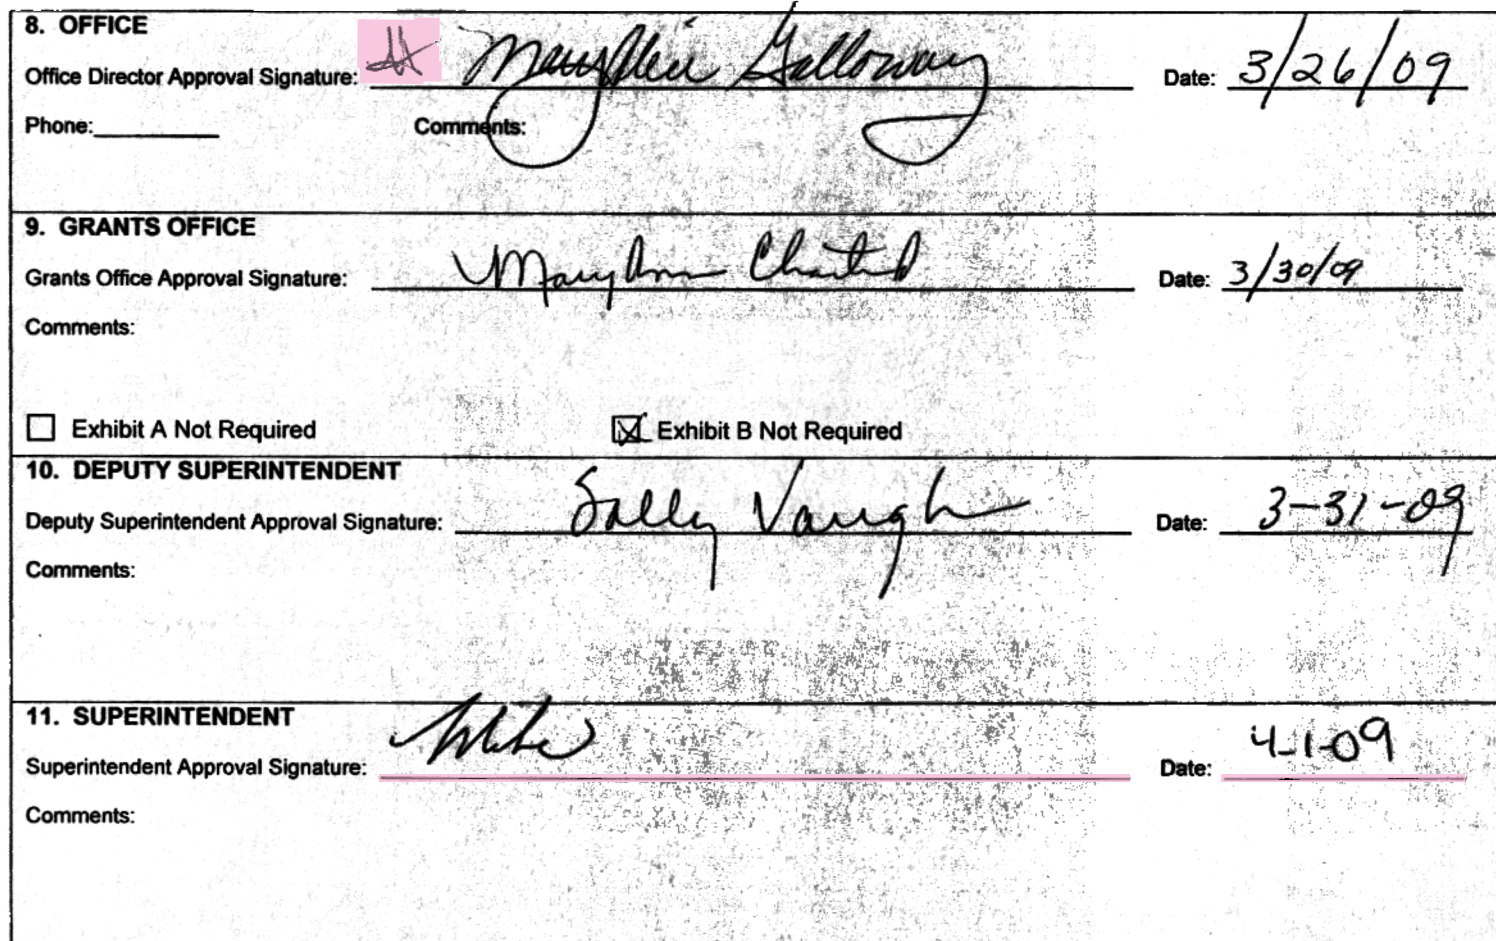 8. OFFICE
Office Director Approval Signature: Galloway Date: 3/26/09
Phone: Comments:
9. GRANTS OFFICE
Grants Office Approval Signature: Mary Ann Date: 3/30/09
Comments:
Exhibit A Not Required Exhibit B Not Required
10. DEPUTY SUPERINTENDENT
Deputy Superintendent Approval Signature: Sally Vaughn Date: 3-31-09
Comments:
11. SUPERINTENDENT
Superintendent Approval Signature: Date: 4-1-09
Comments: